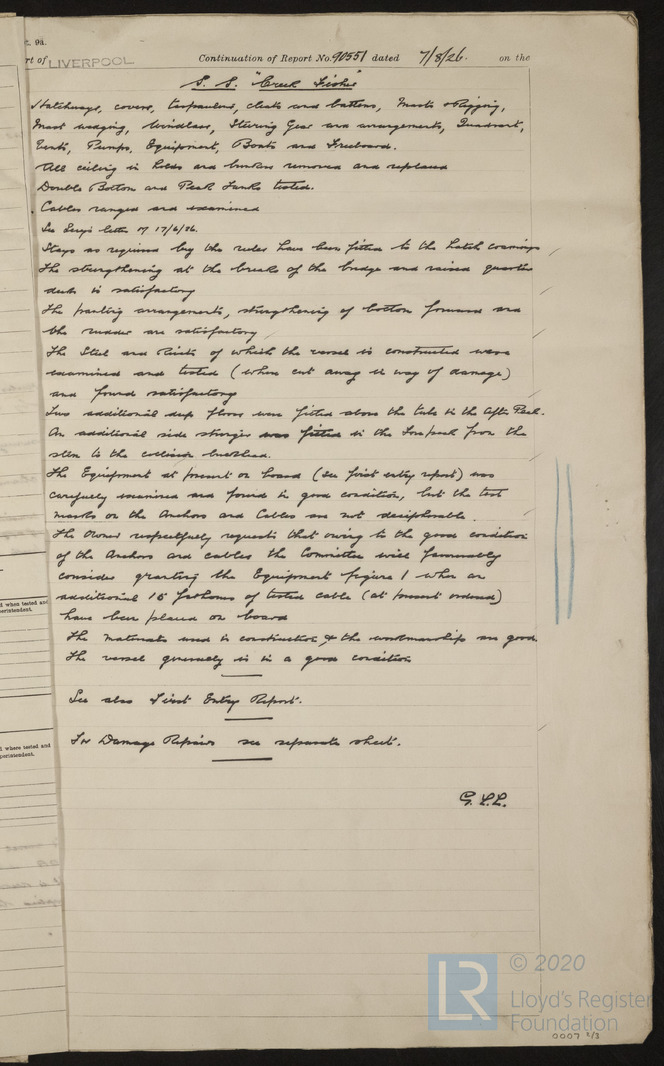 . 9a.
rt of LIVERPOOL Continuation of Report No. 90551 dated 7/8/26. on the
S. S. "Creek Fisher"
Hatchways, covers, tarpaulins, cleats and battens, Masts & Rigging,
Mast wedging, Windlass, Steering Gear and arrangements, Quadrant,
Vents, Pumps, Equipment, Boats and Freeboard.
All ceiling in holds and bunkers removed and replaced
Double Bottom and Peak Tanks tested.
Cables ranged and examined
See Secy's letter of 17/6/26.
Stays as required by the rules have been fitted to the hatch coamings
The strengthening at the breaks of the bridge and raised quarter
deck is satisfactory
The panting arrangements, strengthening of bottom forward and
the rudder are satisfactory
The Steel and Rivets of which the vessel is constructed were
examined and tested (when cut away in way of damage)
and found satisfactory
Two additional deep floors were fitted above the tube in the After Peak.
An additional side stringer was fitted in the Forepeak from the
stem to the collision bulkhead.
The Equipment at present on board (see first entry report) was
carefully examined and found in good condition, but the test
marks on the Anchors and Cables are not decipherable.
The Owner respectfully requests that owing to the good condition
of the Anchors and cables the Committee will favourably
consider granting the Equipment figure 1 when an
additional 15 fathoms of tested cable (at present ordered)
have been placed on board
The materials used in construction & the workmanship are good.
The vessel generally is in a good condition
See also First Entry Report.
For Damage Repairs see separate sheet.
G. L.L.
d when tested and
perintendent.
d where tested and
perintendent.
LR © 2020
Lloyd's Register
Foundation
0007 2/3